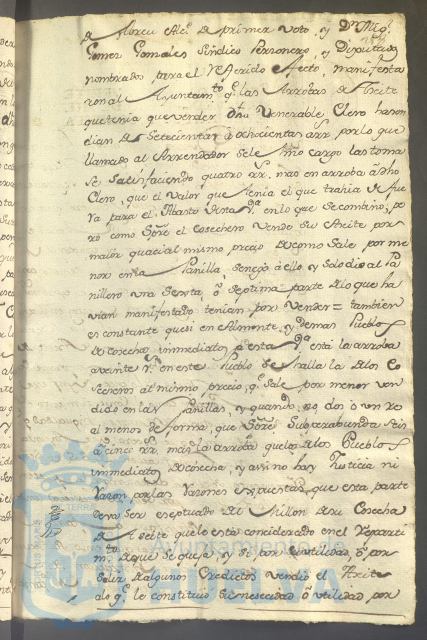 de Abreu Alc.e de primer voto, y D.n Mig.l
Gomez Gonzales Sindico Perzonero, y Diputados
nombrados para el referido Efecto, manifesta
ron al Ayuntam.to q.e las Arrobas de Aceite
que tenia que vender dho Venerable Clero haren
dian de Setecientas à ochocientas arr. por lo que
llamado al Arrendador se le hizo cargo las toma
se, satisfaciendo quatro rr. mas en arroba à dho
Clero, que el valor que tenia el que trahia de fue
ra para el Abasto desta V.a en lo que se combino, pe
ro como Sõre el Cosechero vende su Aceite por
maior quasi al mismo precio de como sale por me
nor en la Panilla, se nego à ello y solo dio al Pa
nillero una Sexta, ò Septima parte de lo que ha
vian manifestado tenian por vender = tambien
es constante que si en Almonte, y demas Pueblos
de cosecha inmediatos à esta V.a está la arroba
a veinte r.s en este Pueblo se halla la de los Co
secheros al mismo precio, q.e sale por menor ven
dido en las Panillas, y quando no, dos ò un rr
al menos de forma, que Sõre Superabunda Seis
ò cinco rr. mas la arroba que la de los Pueblos
inmediatos de cosecha, y asi no hay Justicia ni
razon con las razones expuestas que esta parte
deva ser exeptuado del Millon de su Cosecha
de Aceite que lo está considerado en el Reparti
m.to de que se queja, y si por su utilidad, ò por
Salir de algunos Creditos vendio el Aceite
alo q.e le constituio su nesecidad ò utilidad por